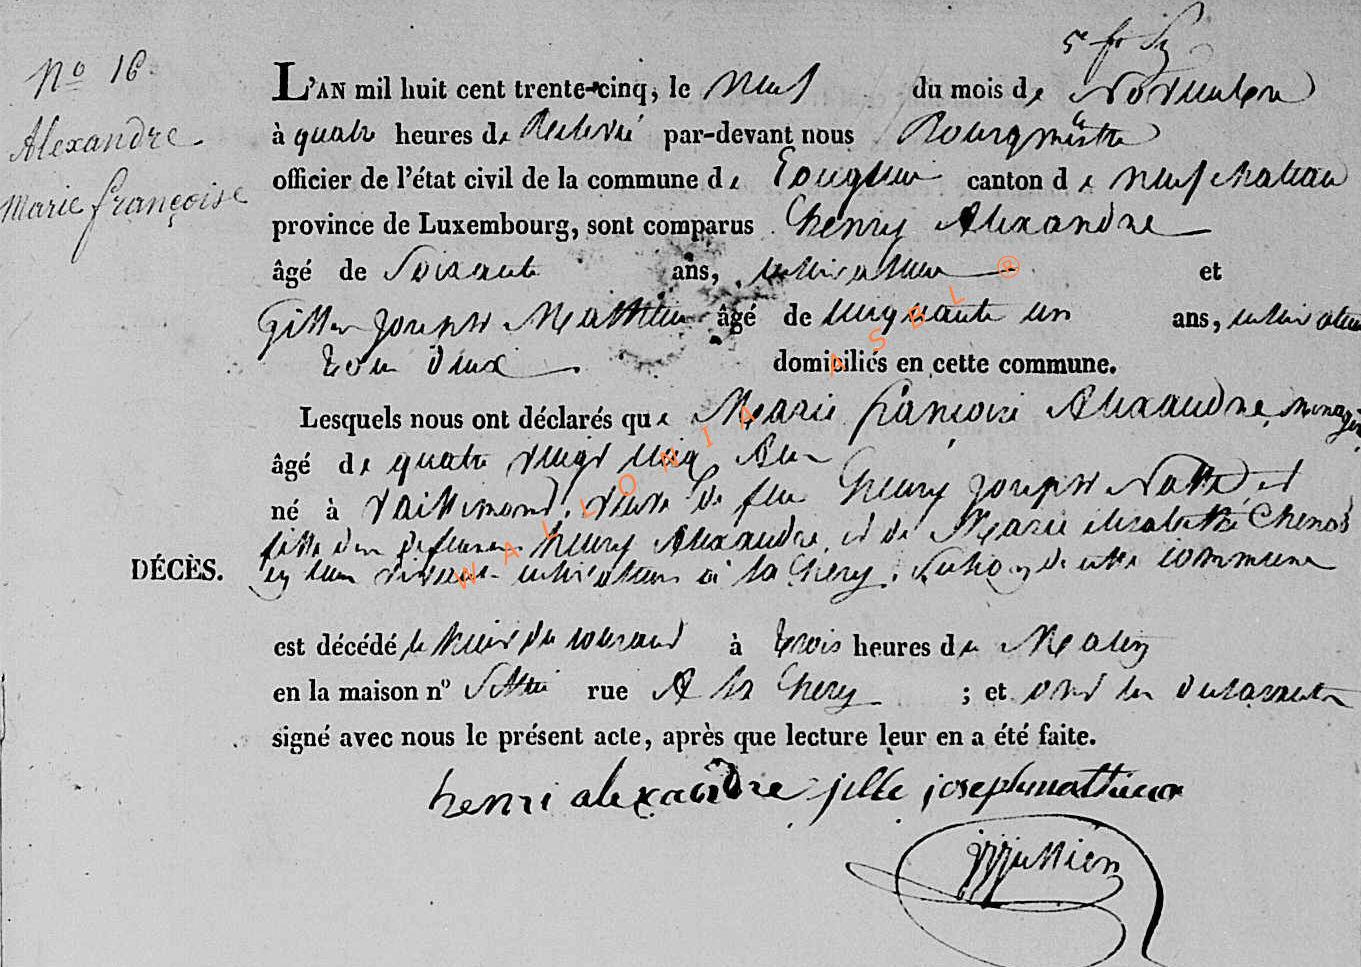 5e
No 16.
Alexandre
Marie françoise
L'AN mil huit cent trente-cinq, le neuf du mois de Novembre
à quatre heures de Relevé par-devant nous Bourgmestre
officier de l'état civil de la commune de canton de neufchateau
province de Luxembourg, sont comparus henry Alexandre
âgé de Soixante ans, cultivateur et
Gille Joseph Mathieu âgé de cinquante un ans, cultivateur
tous deux domiciliés en cette commune.
Lesquels nous ont déclarés que Marie françoise Alexandre, menagere
âgé de quatre vingt cinq Ans
né à vaillimont, veuve de feu henry Joseph et
fille des defunts henry Alexandre, et de Marie elisabethe Chenot
en leur vivant cultivateurs à la hery, de cette commune
DÉCÈS.
est décédé le huit du courant à trois heures du Matin
en la maison no Sette rue A la hery ; et ont les declarants
signé avec nous le présent acte, après que lecture leur en a été faite.
henri alexandre jille joseph mathieux
WALLONIA ASBL ®